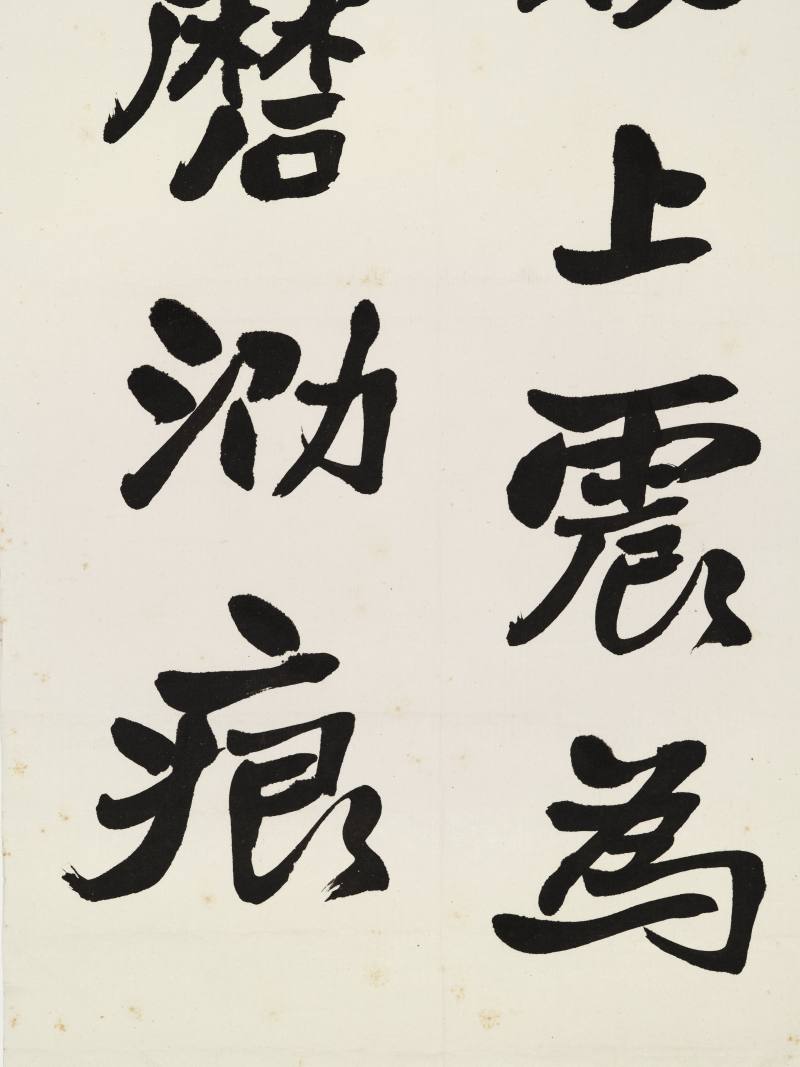 上震為
磨泐痕